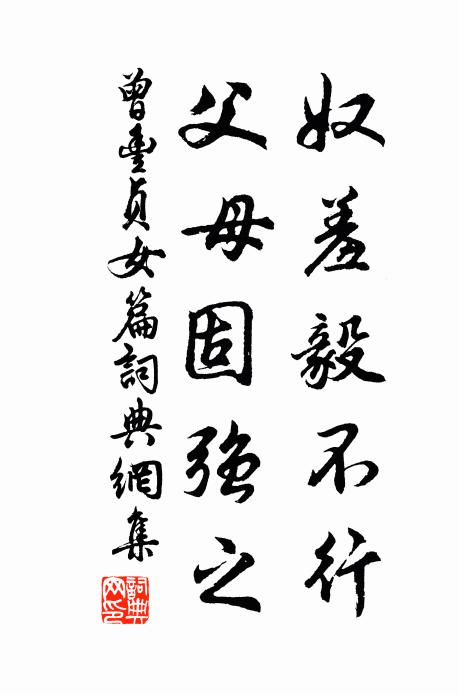 奴羞毅不行
父母固強之
曾豐貞女篇詞典網集
詞典网印